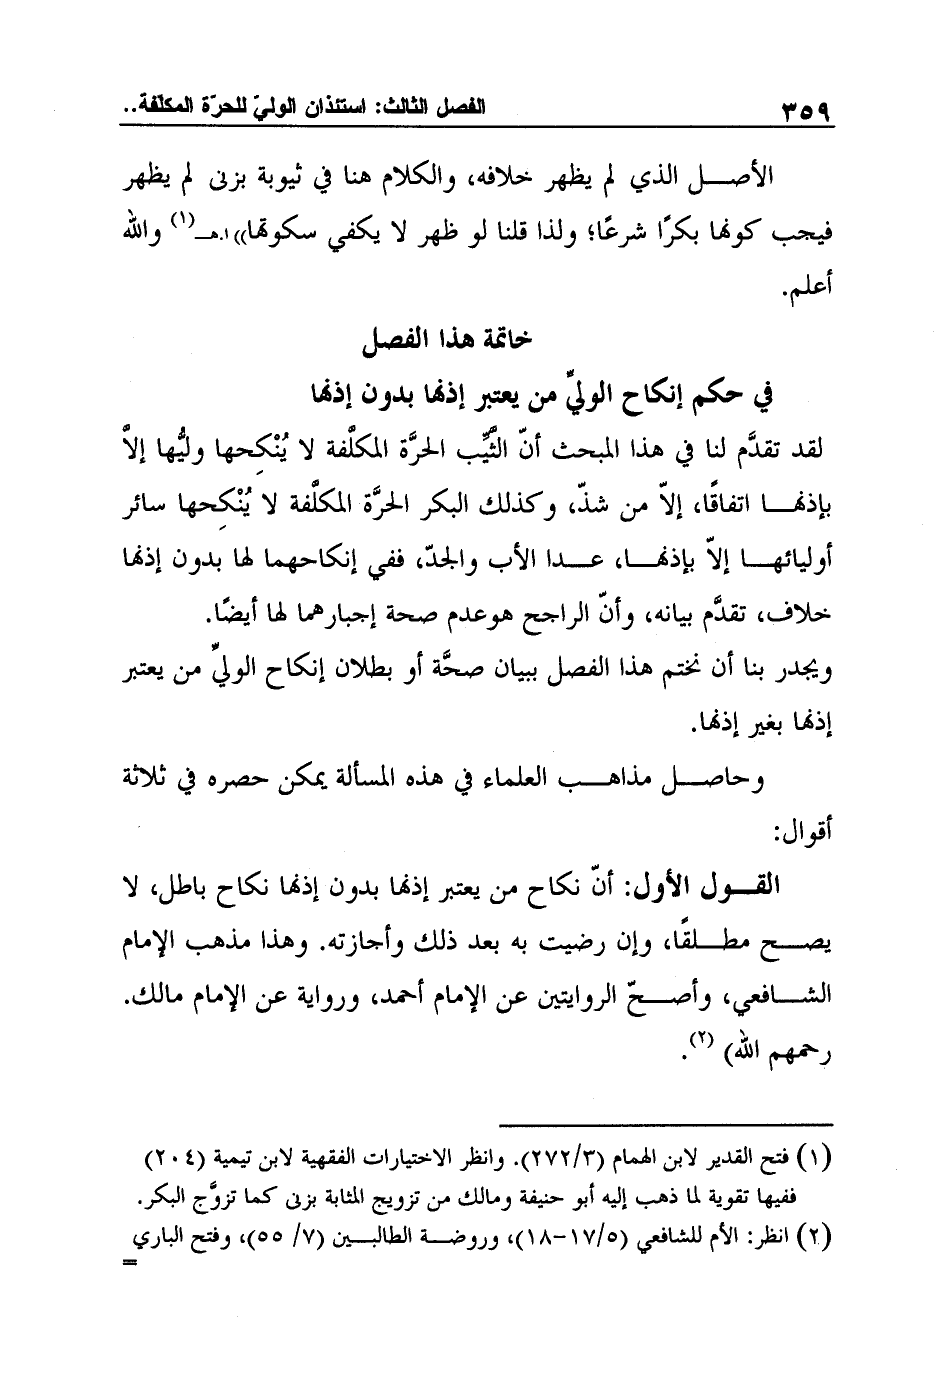 ٣٥٩ الفصل الثالث: استئذان الوليّ للحرّة المكلّفة..
الأصل الذي لم يظهر خلافه، والكلام هنا في ثيوبة بزنى لم يظهر
فيجب كونها بكرًا شرعًا؛ ولذا قلنا لو ظهر لا يكفي سكوتها)) ا.هـ(١) والله
أعلم.
خاتمة هذا الفصل
في حكم إنكاح الوليّ من يعتبر إذنها بدون إذنها
لقد تقدَّم لنا في هذا المبحث أنّ الثَّيِّب الحرَّة المكلَّفة لا يُنْكِحها وليُّها إلاَّ
بإذنها اتفاقًا، إلاّ من شذّ، وكذلك البكر الحرَّة المكلَّفة لا يُنْكِحها سائر
أوليائها إلاّ بإذنها، عدا الأب والجدّ، ففي إنكاحهما لها بدون إذنها
خلاف، تقدَّم بيانه، وأنّ الراجح هوعدم صحة إجبارهما لها أيضًا.
ويجدر بنا أن نختم هذا الفصل ببيان صحَّة أو بطلان إنكاح الوليّ من يعتبر
إذنها بغير إذنها.
وحاصل مذاهب العلماء في هذه المسألة يمكن حصره في ثلاثة
أقوال:
القول الأول: أنّ نكاح من يعتبر إذنها بدون إذنها نكاح باطل، لا
يصح مطلقًا، وإن رضيت به بعد ذلك وأجازته. وهذا مذهب الإمام
الشافعي، وأصحّ الروايتين عن الإمام أحمد، ورواية عن الإمام مالك.
رحمهم الله) (٢).
(١) فتح القدير لابن الهمام (٢٧٢/٣). وانظر الاختيارات الفقهية لابن تيمية (٢٠٤)
ففيها تقوية لما ذهب إليه أبو حنيفة ومالك من تزويج المثابة بزنى كما تزوَّج البكر.
(٢) انظر: الأم للشافعي (١٧/٥-١٨)، وروضة الطالبين (٧/ ٥٥)، وفتح الباري
=